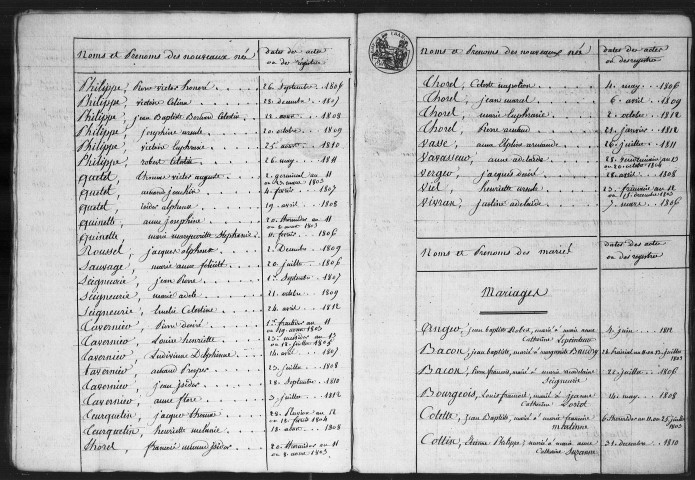 Noms et Prenoms des nouveaux né
dates des actes
ou des registres
Philippe, Pierre victor honoré 26 Septembre 1806
Philippe, victoire Celina 23 decembre 1807
Philippe, jean Baptiste Celestin 1808
Philippe, josephine ursule 20 octobre 1809
Philippe, victoire Euphrasie 25 1810
Philippe, robert Celestin 26 may 1811
quetel, thomas victor auguste 2. germinal an 11
ou 23 mars 1803
quetel, armand 1807
quetel, isidor alphonse 19. avril 1808
quinette, anne josephine 20. thermidor an 11
ou 8 aout 1803
quinette, marie marguerite Stephanie 11. fevrier 1806
Roussel, jacques alphonse 2. Decembre 1809
Sauvage, marie anne felicité 20. juillet 1806
Seigneurie, jean Pierre 1er Septembre 1807
Seigneurie, marie adele 21. octobre 1809
Seigneurie, Emelie Celestine 24. avril 1812
Tavernier, Pierre desiré 1er fructidor an 11
ou 19. aout 1803
Tavernier, Louise henriette messidor an 13
ou juillet 1805
Tavernier, Ludivinne Delphinne 14. avril 1807
Tavernier, armand Prosper 23. juillet 1808
Tavernier, jean isidor 28. Septembre 1810
Tavernier, anne flore 3. juillet 1812
Turquetin, jacques thomas 28. Pluviose an 12
ou 18. fevrier 1804
Turquetin, henriette melanie 18. 1808
Thorel, francois isidor 20. thermidor an 11
ou 8. aout 1803
Noms et Prenoms des nouveaux né
dates des actes
ou des registres
Thorel, Celeste napoleon 4. may 1806
Thorel, jean marcel 6. avril 1809
Thorel, marie Euphrasie 2. octobre 1812
Thorel, Pierre 21. janvier 1812
vasse, anne armande 26. juillet 1811
Vavasseur, anne adelaide 28. Vendemiaire an 13
ou 20 octobre 1804
verger, jacques desiré 28. avril 1808
Viel, henriette ursule 23. frimaire an 12
ou 15. decembre 1803
Vivran, justine adelaide 7. mars 1806
Noms et Prenoms des mariés
dates des actes
ou des registres
Mariages
Anger, jean baptiste, marié à marie anne 4. juin 1812
Catherine Lepeinteur
Bacon, jean baptiste, marié à Baudry an 11 ou 13. juillet
1803
Bacon, Pierre francois, marié à marie madelaine 22. juillet 1806
Seigneurie
Bourgeois, Louis francois, marié à jeanne 14. may 1808
Catherine
Colette, Jean Baptiste, marié à marie francoise 6. thermidor an 11. ou 25. juillet
1803
Cottin, Etienne Philippe, marié à marie anne 31. decembre 1810
Catherine Suzanne